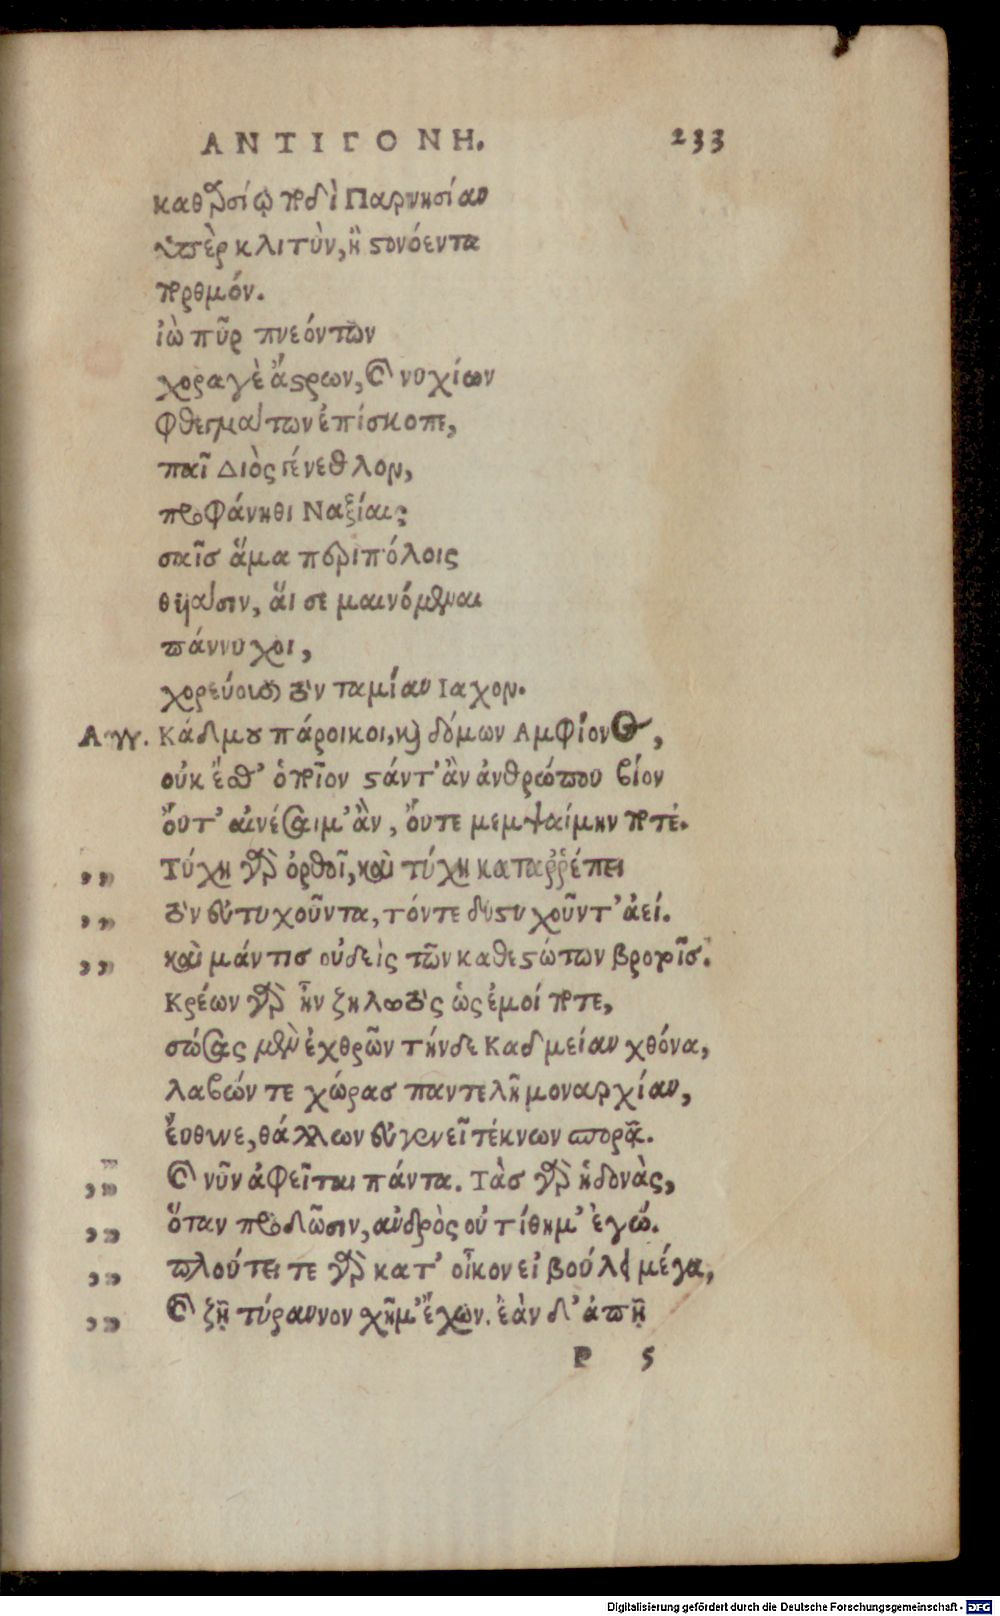 ΑΝΤΙΓΟΝΗ. 233
καθαρσίῳ ποδὶ Παρνησίαν
ὑπὲρ κλιτὺν, ἢ στονόεντα
πορθμόν.
ἰὼ πῦρ πνεόντων
χοραγὲ ἄστρων, καὶ νυχίων
φθεγμάτων ἐπίσκοπε,
παῖ Διὸς γένεθλον,
προφάνηθι Ναξίαις
σαῖσ ἅμα περιπόλοις
θυιάσιν, ἅι σε μαινόμεναι
πάννυχοι,
χορεύουσι τὸν ταμίαν Ιαχον.
Αγγ. Κάδμου πάροικοι, καὶ δόμων Αμφίονος,
οὐκ ἔσθ' ὁποῖον στάντ' ἂν ἀνθρώπου βίον
οὔτ' αἰνέσαιμ' ἂν, οὔτε μεμψαίμην ποτέ.
,, Τύχη γὰρ ὀρθοῖ, καὶ τύχη καταῤῥέπει
,, τὸν εὐτυχοῦντα, τόντε δυστυχοῦντ' ἀεί.
,, καὶ μάντισ οὐδεὶς τῶν καθεστώτων βροτοῖσ.
Κρέων γὰρ ἦν ζηλωτὸς ὡς ἐμοί ποτε,
σώσας μὲν ἐχθρῶν τήνδε Καδμείαν χθόνα,
λαβών τε χώρασ παντελῆ μοναρχίαν,
ἔυθυνε, θάλλων εὐγενεῖ τέκνων σπορᾷ.
,, καὶ νῦν ἀφεῖται πάντα. Τὰσ γὰρ ἡδονὰς,
,, ὅταν προδῶσιν, ἀνδρὸς οὐ τίθημ' ἐγώ.
,, πλούτει τε γὰρ κατ' οἶκον εἰ βούλει μέγα,
,, καὶ ζῇ τύραννον χῆμ' ἔχων. ἐὰν δ' ἀπῇ
P 5
Digitalisierung gefördert durch die Deutsche Forschungsgemeinschaft - DFG